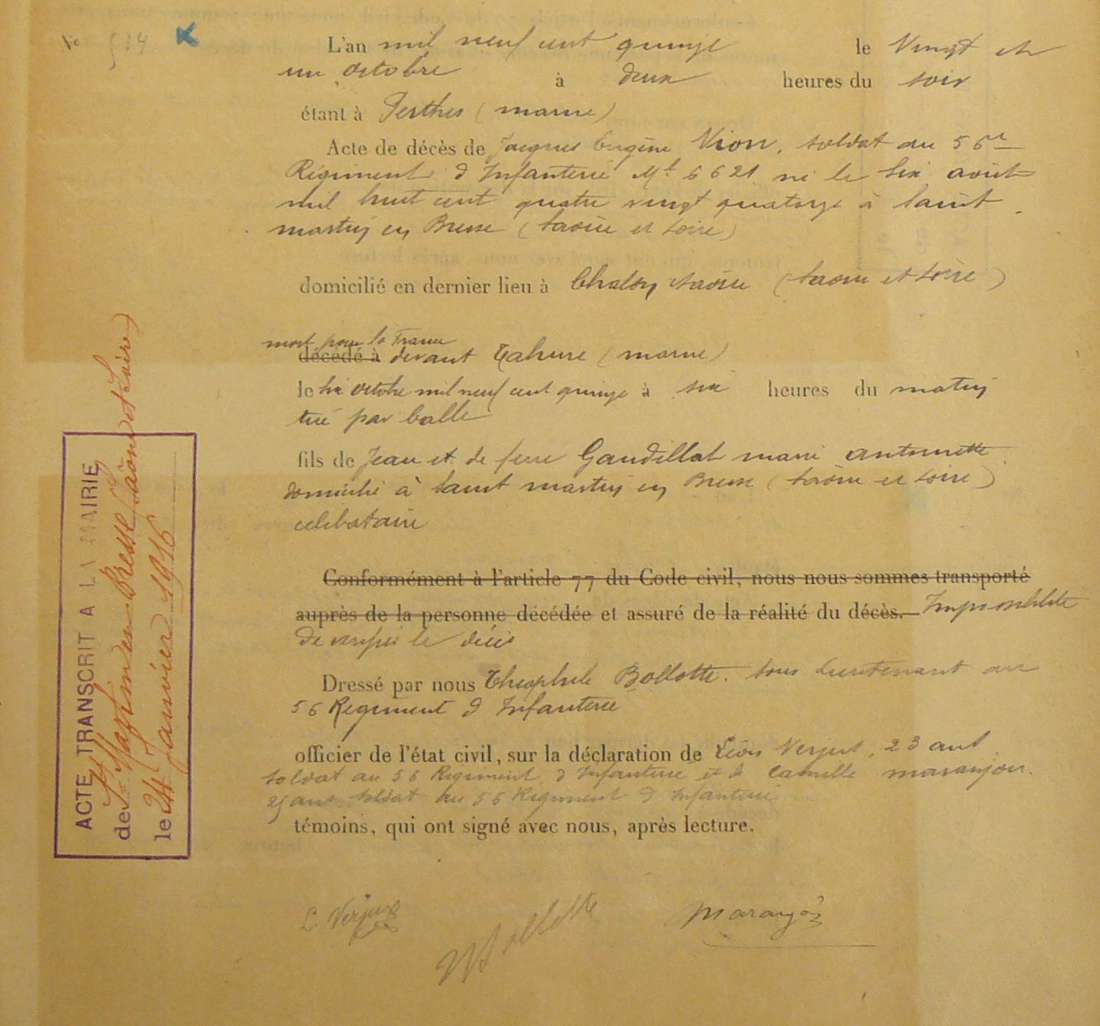 No 514
L'an mil neuf cent quinze le Vingt et
un octobre à deux heures du soir
étant à Perthes (marne)
Acte de décès de Jacques Eugène Vion, soldat au 56e
Régiment d Infanterie Mle 6621 né le six août
mil huit cent quatre vingt quatorze à saint
martin en Bresse (saône et Loire)
domicilié en dernier lieu à Chalon saône (saône et Loire)
mort pour la France
décédé à devant Tahure (marne)
le six octobre mil neuf cent quinze à six heures du matin
tué par balle
fils de Jean et de feue Gaudillat marie antoinette
domicilié à saint martin en Bresse (saône et Loire)
celibataire
Conformément à l'article 77 du Code civil, nous nous sommes transporté
auprès de la personne décédée et assuré de la réalité du décès. Impossibilité
de verifier le décès
Dressé par nous Théophile Bollotte. sous Lieutenant au
56 Regiment d Infanterie
officier de l'état civil, sur la déclaration de Verjus, 23 ans
soldat au 56 Regiment d Infanterie et de Camille maranjon.
25 ans soldat au 56 Regiment d Infanterie
témoins, qui ont signé avec nous, après lecture.
L. Verjus
Bollotte
Maranjon
ACTE TRANSCRIT A LA MAIRIE
de St Martin en Bresse (Saône et Loire)
le 24 Janvier 1916